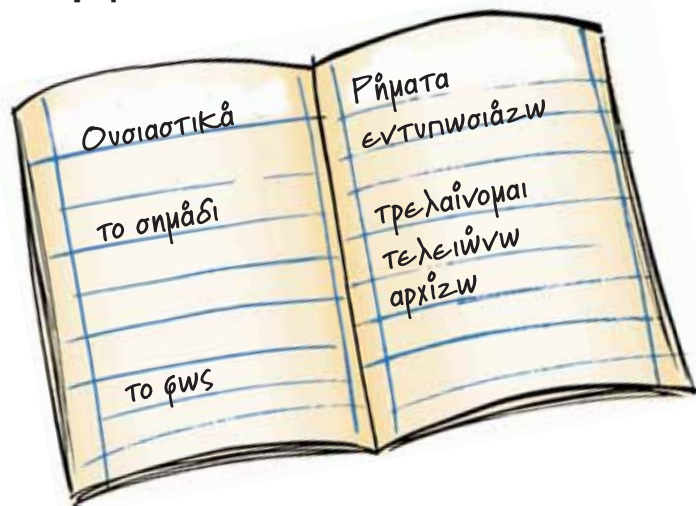 Ουσιαστικά
το σημάδι
το φως
Ρήματα
εντυπωσιάζω
τρελαίνομαι
τελειώνω
αρχίζω